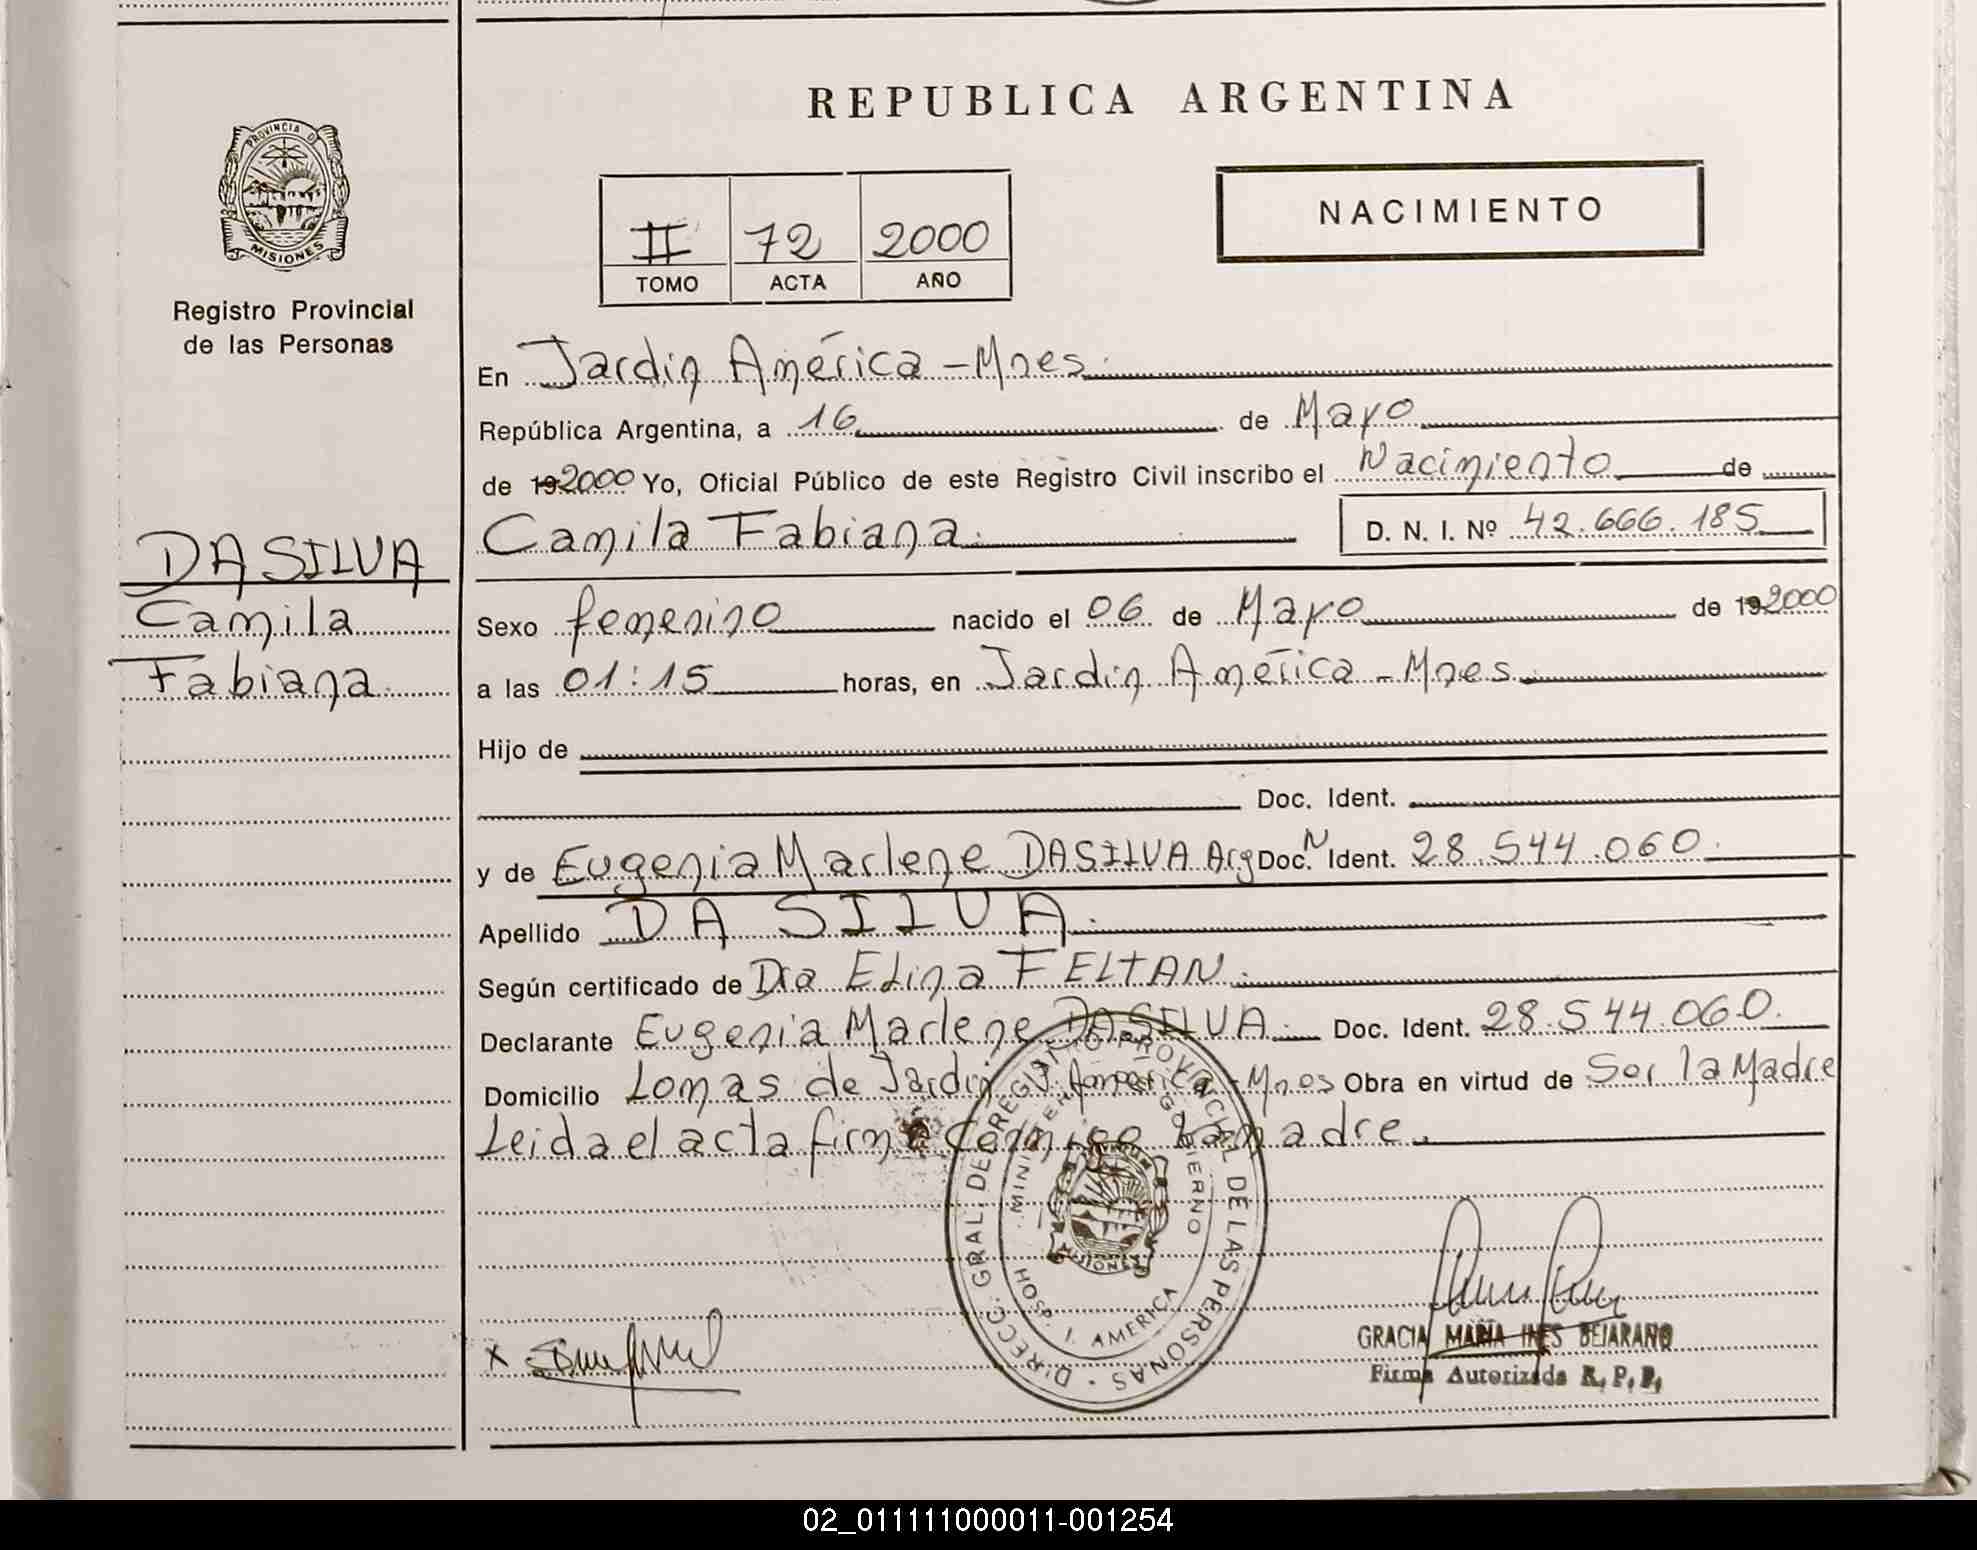 REPUBLICA ARGENTINA
PROVINCIA DE
MISIONES
Registro Provincial
de las Personas
II 72 2000
TOMO ACTA AÑO
NACIMIENTO
En Jardin América - Mnes.
República Argentina, a 16 de Mayo
de 192000 Yo, Oficial Público de este Registro Civil inscribo el Nacimiento de
Camila Fabiana. D. N. I. Nº 42.666.185
DA SILVA
Camila
Fabiana.
Sexo femenino nacido el 06 de Mayo de 192000
a las 01:15 horas, en Jardin América - Mnes.
Hijo de
Doc. Ident.
y de Eugenia Marlene DA SILVA Arg Doc. N Ident. 28.544.060.
Apellido DA SILVA.
Según certificado de Dra Elina FELTAN.
Declarante Eugenia Marlene DA SILVA. Doc. Ident. 28.544.060.
Domicilio Lomas de Jardin J. América - Mnes Obra en virtud de Ser la Madre
Leida el acta firma conmigo la madre.
DIRECC. GRAL. DE REGISTRO PROVINCIAL DE LAS PERSONAS
GOBIERNO
MISIONES
HOSP. J. AMERICA
X
GRACIA MARIA INES BEJARANO
Firma Autorizada R. P. P.
02_011111000011-001254